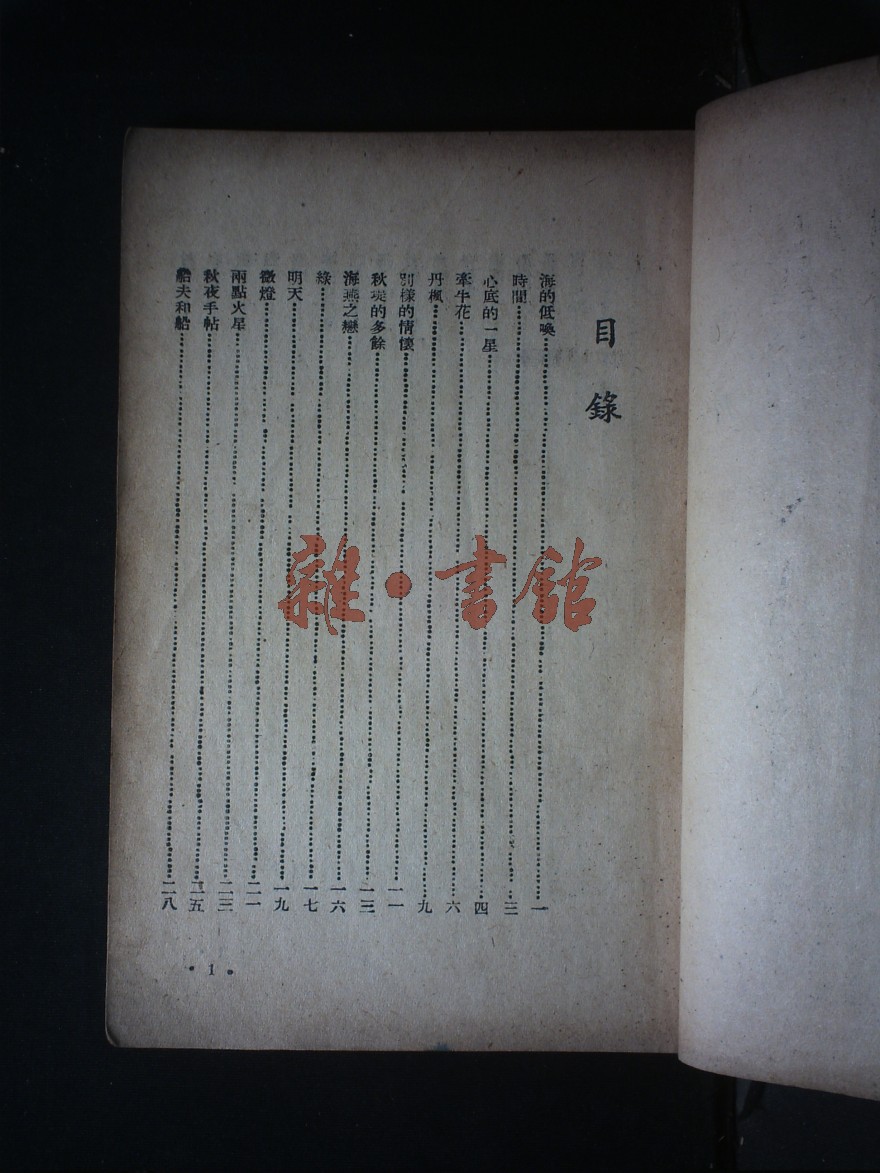 目錄
海的低喚……一
時間……三
心底的一星……四
牽牛花……六
丹楓……九
別樣的情懷……一一
秋堤的多餘……一三
海燕之戀……一六
綠……一七
明天……一九
微燈……二一
兩點火星……二三
秋夜手帖……二五
船夫和船……二八
• 1 •
雜•書館